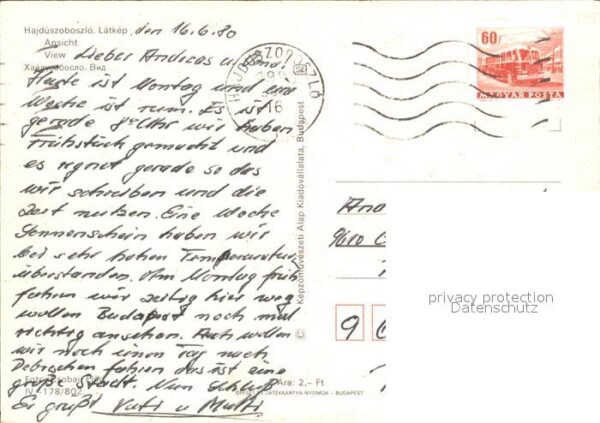 Hajdúszoboszló. Látkép
Ansicht
View
Хайдусобосло. Вид
den 16.6.80
Lieber Andreas u.
Heute ist Montag und eine
Woche ist rum. Es ist
gerade 8 Uhr wir haben
Frühstück gemacht und
es regnet gerade so das
wir schreiben und die
Zeit nutzen. Eine Woche
Sonnenschein haben wir
bei sehr hohen Temperaturen
überstanden. Am Montag früh
fahren wir zeitig hier weg
wollen Budapest noch mal
richtig ansehen. Auch wollen
wir noch einen Tag nach
Debrecen fahren das ist eine
große Stadt. Nun Schluß
Es grüßt Vati u Mutti.
Foto:
IV-178/802
Ára: 2,- Ft
OFFSET ÉS JÁTÉKKÁRTYA NYOMDA - BUDAPEST
© Képzőművészeti Alap Kiadóvállalata, Budapest
HAJDÚSZOBOSZLÓ
16
60f
MAGYAR POSTA
And
9610
9
privacy protection
Datenschutz